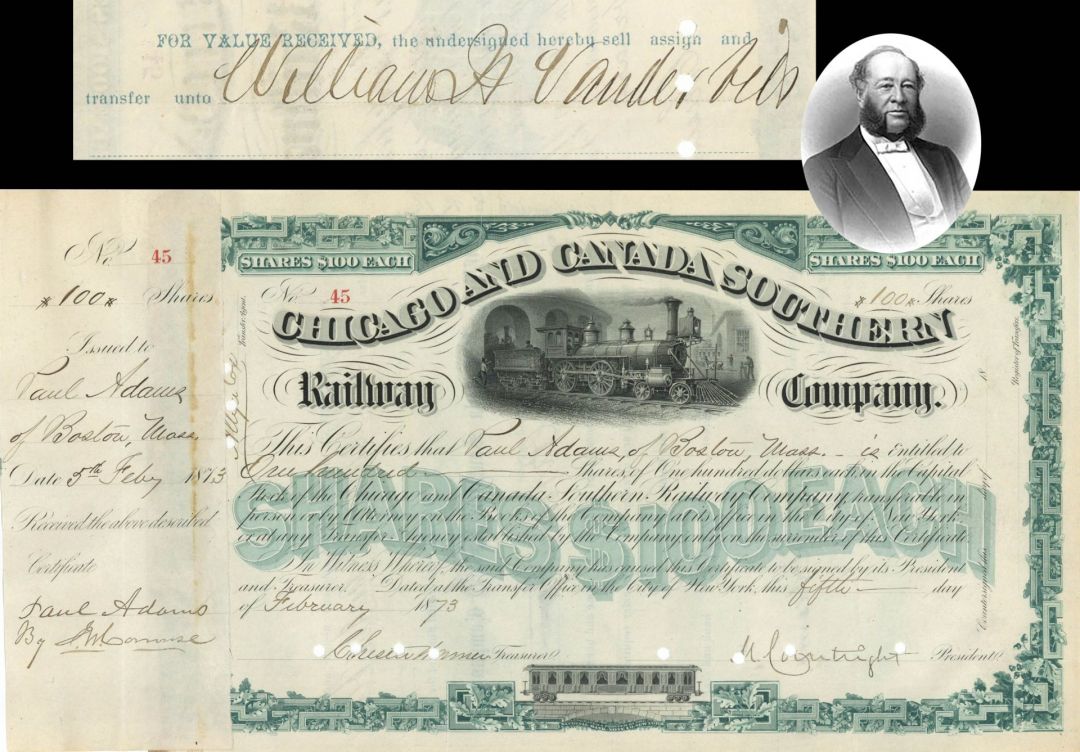 FOR VALUE RECEIVED, the undersigned hereby sell assign and
transfer unto William H Vanderbilt
No 45
*100* Shares
Issued to
Paul Adams
of Boston, Mass.
Date 5th Feby 1873
Received the above described
Certificate
Paul Adams
By
SHARES $100 EACH
SHARES $100 EACH
No 45
*100* Shares
CHICAGO AND CANADA SOUTHERN
Railway Company.
This Certifies that Paul Adams, of Boston, Mass. is Entitled to
One hundred Shares, of One hundred dollars each in the Capital
Stock of the Chicago and Canada Southern Railway Company, transferable in
person or by Attorney on the Books of the Company at its office in the City of New York
or at any Transfer Agency established by the Company, only on the surrender of this Certificate
SHARES $100 EACH
In Witness Whereof, the said Company has caused this Certificate to be signed by its President
and Treasurer. Dated at the Transfer Office in the City of New York, this fifth day
of February 1873
Treasurer
M Courtright President
Transfer Agent.
Countersigned this day of 18
Register of Transfer.